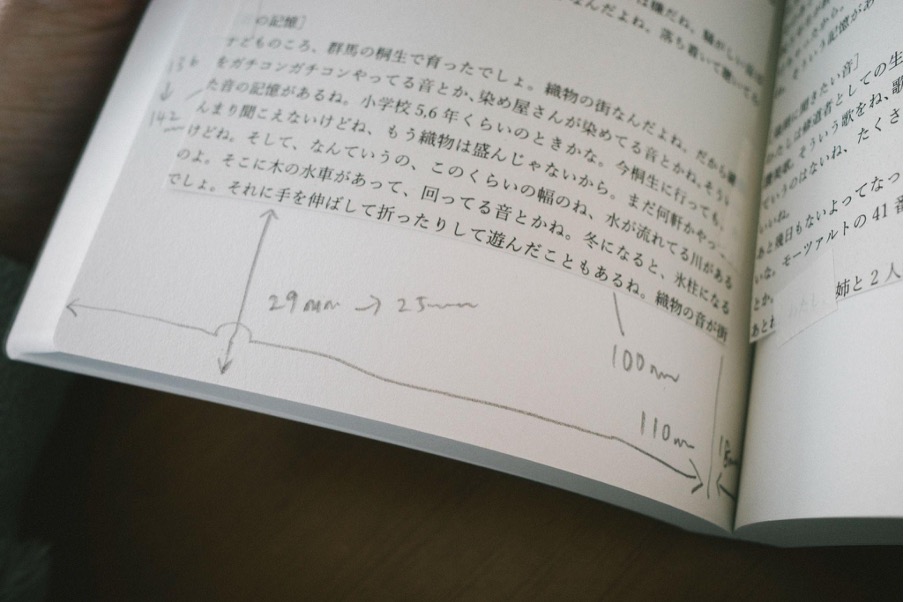 は嫌だね。騒がしい
なんだよね。落ち着いて聴いてる
の記憶］
子どものころ、群馬の桐生で育ったでしょ。織物の街なんだよね。だから
をガチコンガチコンやってる音とか、染め屋さんが染めてる音とかね。そうい
た音の記憶があるね。小学校5,6年くらいのときかな。今桐生に行っても、
んまり聞こえないけどね、もう織物は盛んじゃないから。まだ何軒かやっ
けどね。そして、なんていうの、このくらいの幅のね、水が流れてる川がある
のよ。そこに木の水車があって、回ってる音とかね。冬になると、氷柱になる
でしょ。それに手を伸ばして折ったりして遊んだこともあるね。織物の音が街
136
↓
142
29mm → 25mm
100mm
110m
18m
そういう記憶が
に聞きたい音］
は修道者としての生
そういう歌をね、歌
ていうのはないね、たくさ
いいね。
あと幾日もないよってなっ
いな。モーツァルトの41番
とか。
あとね
姉と2人